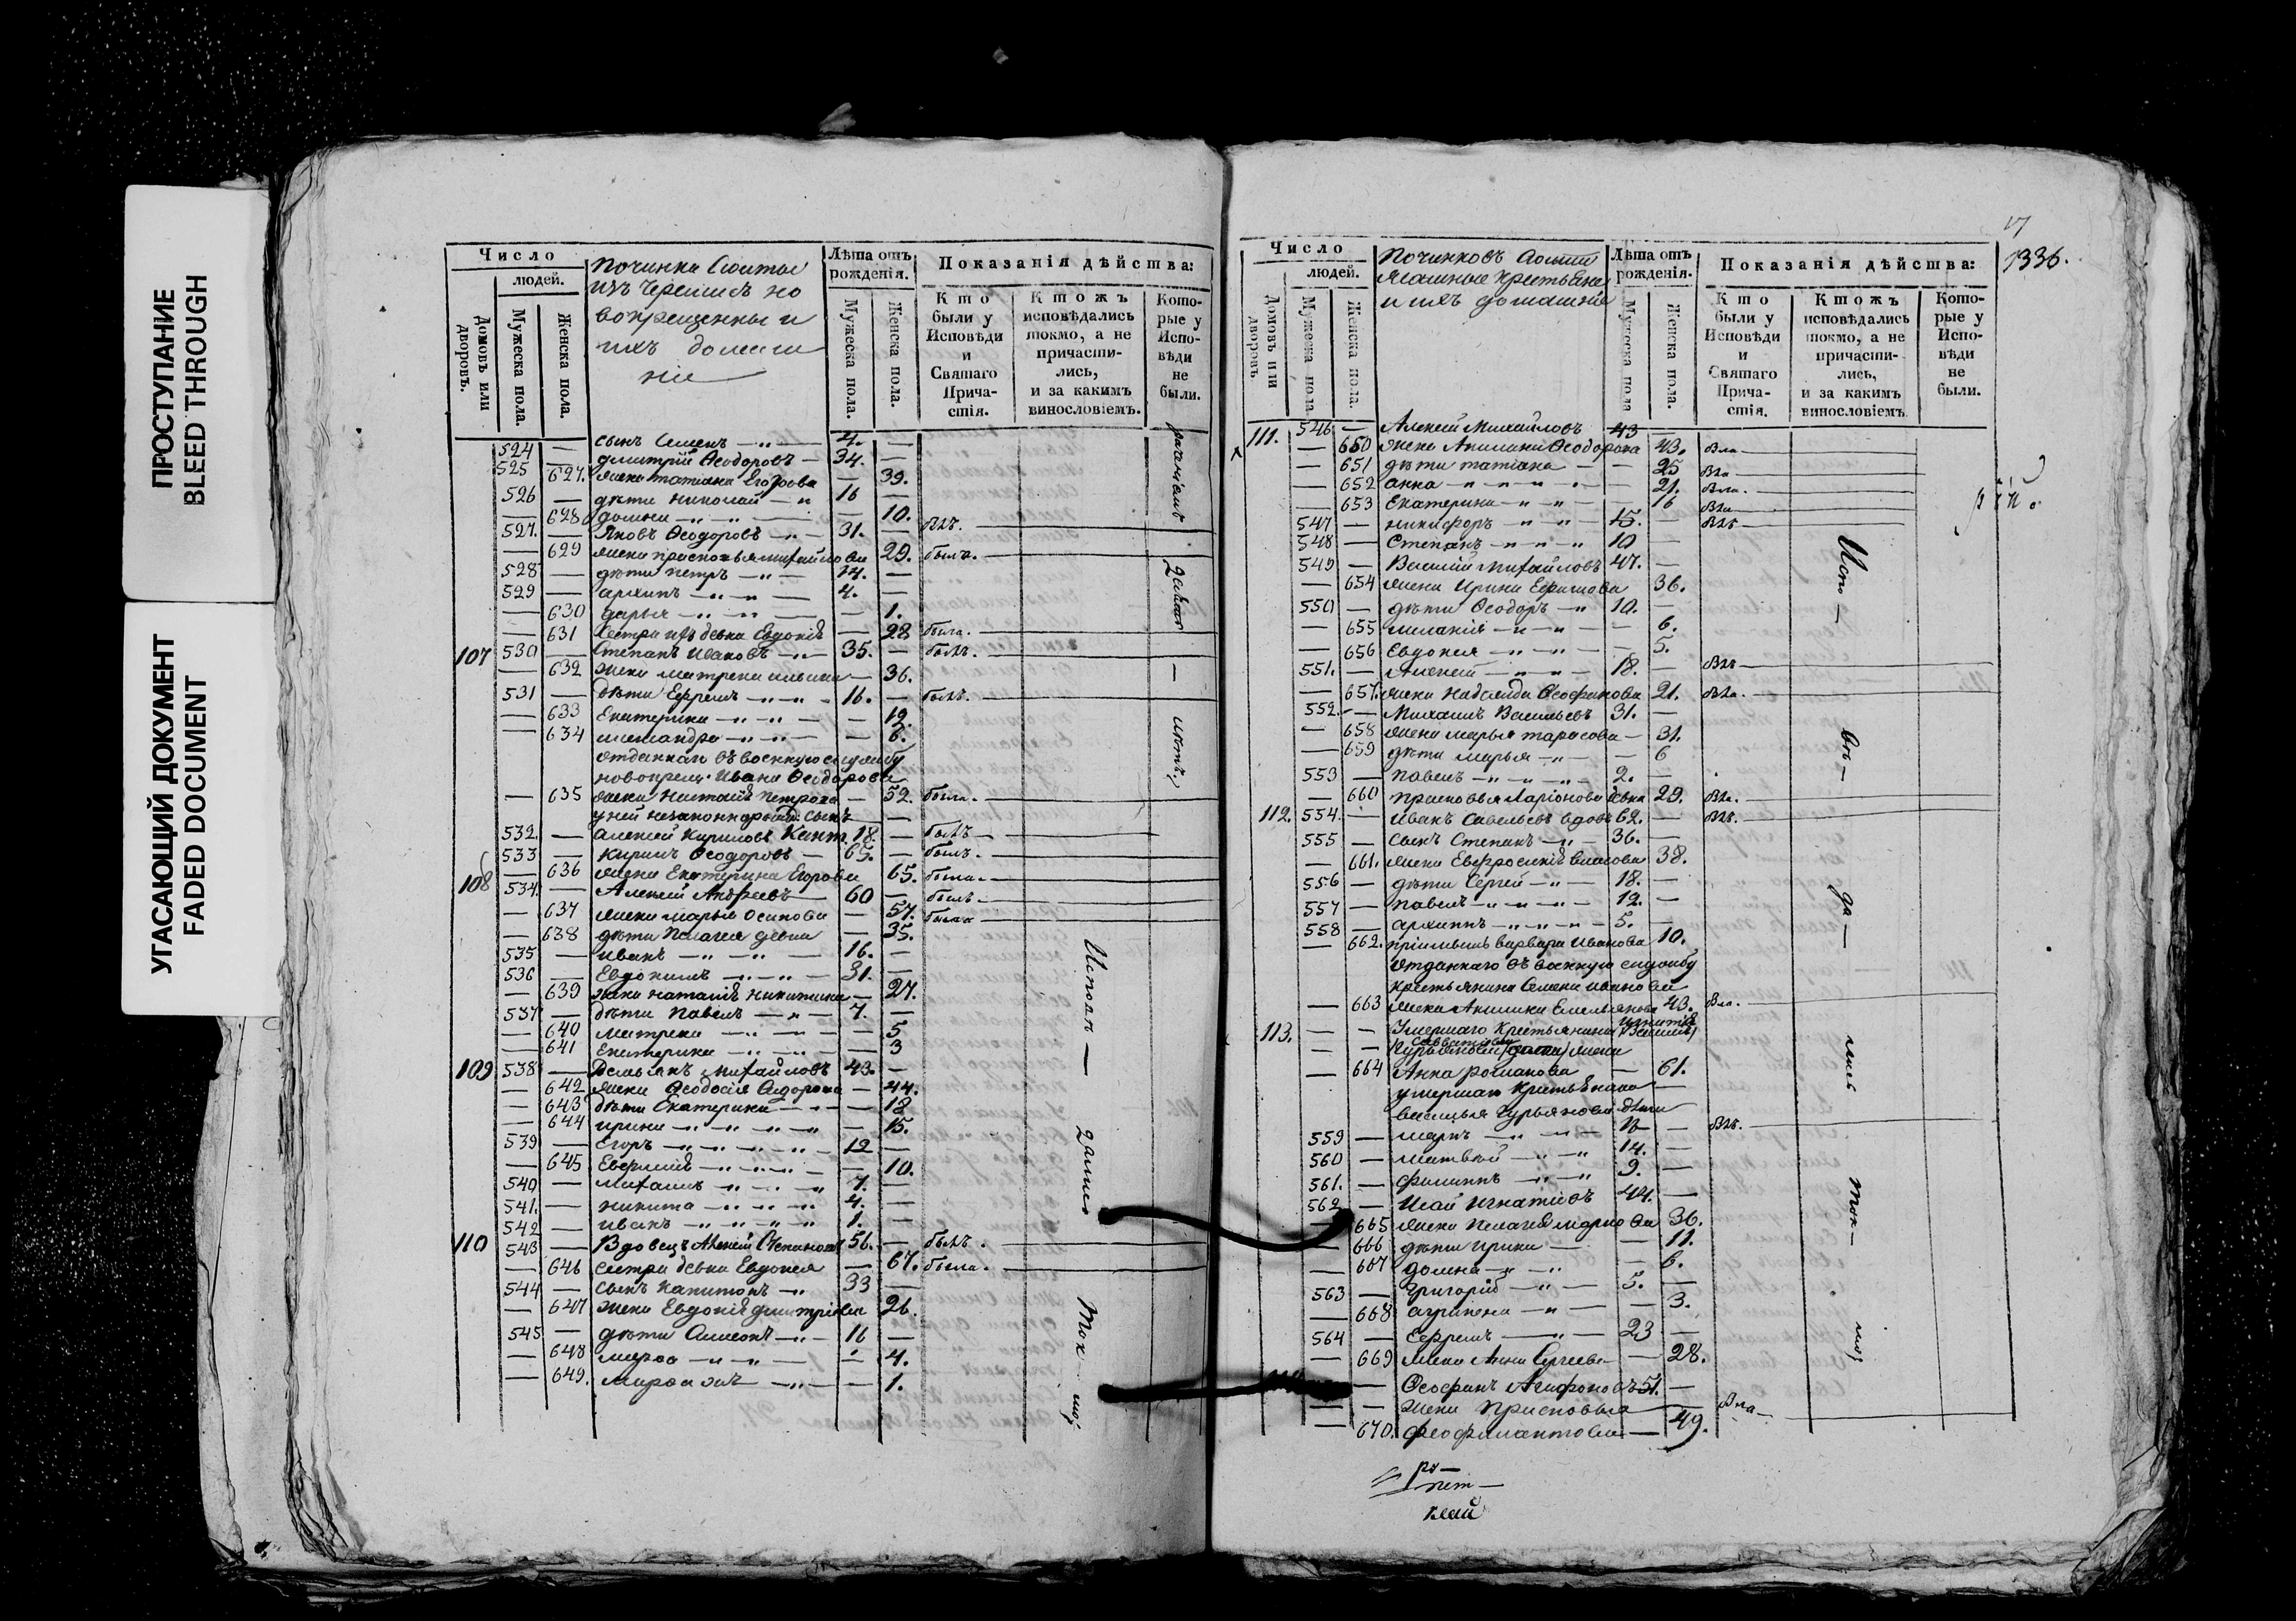 ПРОСТУПАНИЕ
BLEED THROUGH
УГАСАЮЩИЙ ДОКУМЕНТ
FADED DOCUMENT
Число
людей.
Домовъ или дворовъ.
Мужеска пола.
Женска пола.
починка
изъ черемисъ но
вокрещенны и
ихъ домаш
ніе
Лѣта отъ рожденія.
Мужеска пола.
Женска пола.
Показанія дѣйства:
Кто были у Исповѣди и Святаго Причастія.
Ктожъ исповѣдались токмо, а не причастились, и за какимъ винословіемъ.
Которые у Исповѣди не были.
524 — сынъ Семенъ — 4. —
525 — Дмитрій Ѳеодоровъ — 34. —
— 627. жена татіана Егорова — 39.
526 — дѣти николай — 16 —
— 628 домна — 10.
527. — Яковъ Ѳеодоровъ — 31. — былъ.
— 629 жена прасковья михайлова 29. была.
528 — дѣти петръ — 14. —
529 — архипъ — 4. —
— 630 дарья — 1.
— 631 Сестра ихъ девка Евдокія — 28 была.
107 530 — Степанъ Ивановъ — 35. — былъ.
— 632 жена матрена ильина — 36.
531 — дѣти Ефремъ — 16. — былъ.
— 633 Екатерина — 12.
— 634 — 6.
отданнаго въ военную службу
новокрещ. Ивана Ѳеодорова
— 635 жена Наталья петрова — 52. была.
у ней незаконнорожд. сынъ
532. — алексей Кириловъ Кант. 18. — былъ
533 — Кирилъ Ѳеодоровъ — 65. — былъ.
— 636 жена Екатерина Егорова 65. была.
108 534. — Алексей Андреевъ 60 — былъ
— 637 жена марья Осипова — 57. была
— 638 дѣти Пелагея девка — 35.
535 — иванъ — 16. —
536 — Евдокимъ — 31. —
— 639 жена наталія никитина — 27.
537 — дѣти павелъ — 7. —
— 640 матрена — 5
— 641 Екатерина — 3
109 538 — Демьянъ михайловъ 43. —
— 642 жена Ѳеодосія Сидорова — 44.
— 643 дѣти Екатерина — 18
— 644 ирина — 15.
539 — Егоръ — 12 —
— 645 — 10.
540 — михаилъ — 7. —
541. — никита — 4. —
542 — иванъ — 1. —
110 543 — Вдовецъ Алексей Степановъ 56. — былъ.
— 646 сестра девка Евдокея — 67. была.
544 — сынъ капитонъ — 33 —
— 647 жена Евдокія дмитріева 26.
545 — дѣти — 16 —
— 648 марѳа — 4.
— 649. марѳа жъ — 1.
17
1336.
Число
людей.
Домовъ или дворовъ
Мужеска пола
Женска пола.
починковъ
крестьяне
и ихъ домашніе
Лѣта отъ рожденія.
Мужеска пола
Женска пола.
Показанія дѣйства:
Кто были у Исповѣди и Святаго Причастія.
Ктожъ исповѣдались токмо, а не причастились, и за какимъ винословіемъ
Которые у Исповѣди не были.
111. 546 — Алексей Михайловъ 43 —
— 650 жена Акилина Ѳеодорова 43. Бла
— 651 дѣти татіана — 25 Бла
— 652 анна — 21. Бла.
— 653 Екатерина — 16 Бла
547 — никифоръ — 15. — Блъ
548 — Степанъ — 10 —
549 — Василій михайловъ 47. —
— 654 жена Ирина Ефимова 36.
550 — дѣти Ѳеодоръ — 10. —
— 655 меланія — 6.
— 656 Евдокея — 5.
551. — Алексей — 18. — Блъ
— 657. жена надежда Ѳеофанова 21. Бла.
552. — Михаилъ Васильевъ 31. —
— 658 жена марья тарасова — 31.
— 659 дѣти марья — 6
553 — павелъ — 2. —
— 660 прасковья Ларіонова девка 29. Бла.
112. 554. — Иванъ Савельевъ вдовъ 62. — Блъ.
555 — сынъ Степанъ — 36. —
— 661. жена Евфросинія власова 38.
556 — дѣти Сергей — 18. —
557 — павелъ — 12. —
558 — архипъ — 5. —
— 662. варвара Иванова 10.
отданнаго въ военную службу
крестьянина Семена иванова
— 663 жена Акилина Емельянова 43. Бла.
113. — — Умершаго Крестьянина
жена
— 664 Анна романова — 61.
умершаго Крестьянина
василья Гурьянова дѣти
559 — маркъ — — Блъ.
560 — матвей — 14. —
561. — филиппъ — 9. —
562 — Исай Игнатіевъ 44. —
— 665 жена Пелагея 36.
— 666 дѣти ирина — 11.
— 667 домна — 6.
563 — Григорій — 5. —
— 668 агрипена — 3.
564 — Ефремъ — 23 —
— 669 жена Анна Сергеева — 28.
— Ѳеофанъ Агафоновъ 51. —
— — жена Прасковья Бла
— 670. феофилактова — 49.